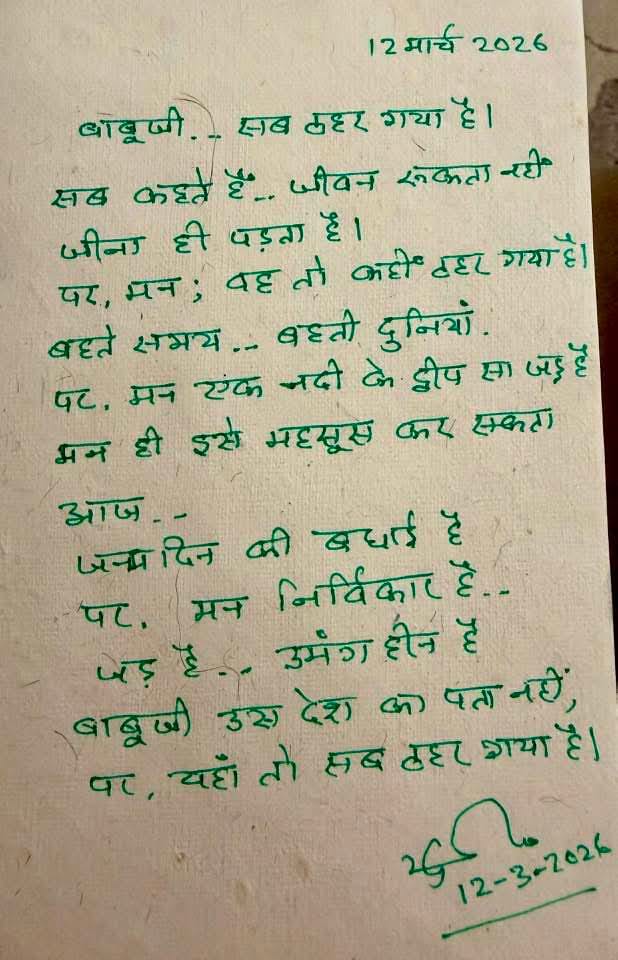 12 मार्च 2026
बाबूजी... सब ठहर गया है।
सब कहते हैं... जीवन रूकता नहीं
जीना ही पड़ता है।
पर, मन; वह तो कहीं ठहर गया है।
बहते समय... बहती दुनियां.
पर. मन एक नदी के द्वीप सा जड़ है
मन ही इसे महसूस कर सकता
आज...
जन्मदिन की बधाई है
पर. मन निर्विकार है...
जड़ है... उमंग हीन है
बाबूजी उस देश का पता नहीं,
पर, यहाँ तो सब ठहर गया है।
12-3-2026